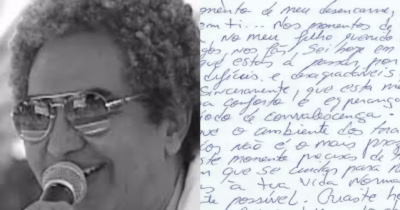 mento de meu desencarne,
em ti... Nos momentos de
No meu filho querido
gos, nos fãs, sei hoje em
que estás a passar, por
difíceis, e desagradáveis,
sinceramente, que esta mi
conforto e esperança
íodo de convalescença.
ue o ambiente dos
dos não é o mais prop
este momento precisas de
em que se cuidar para
a tua vida norma
te possível. Quaste